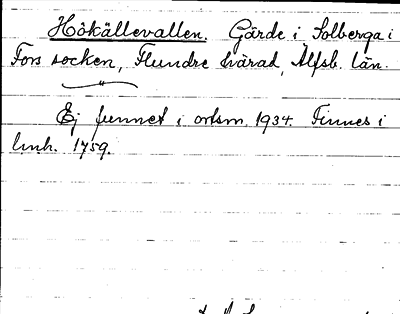 Hökällevallen. Gärde i Solberga i
Fors socken, Flundre härad, Älfsb. län.
Ej funnet i ortsn. 1934. Finnes i
lmh. 1759.